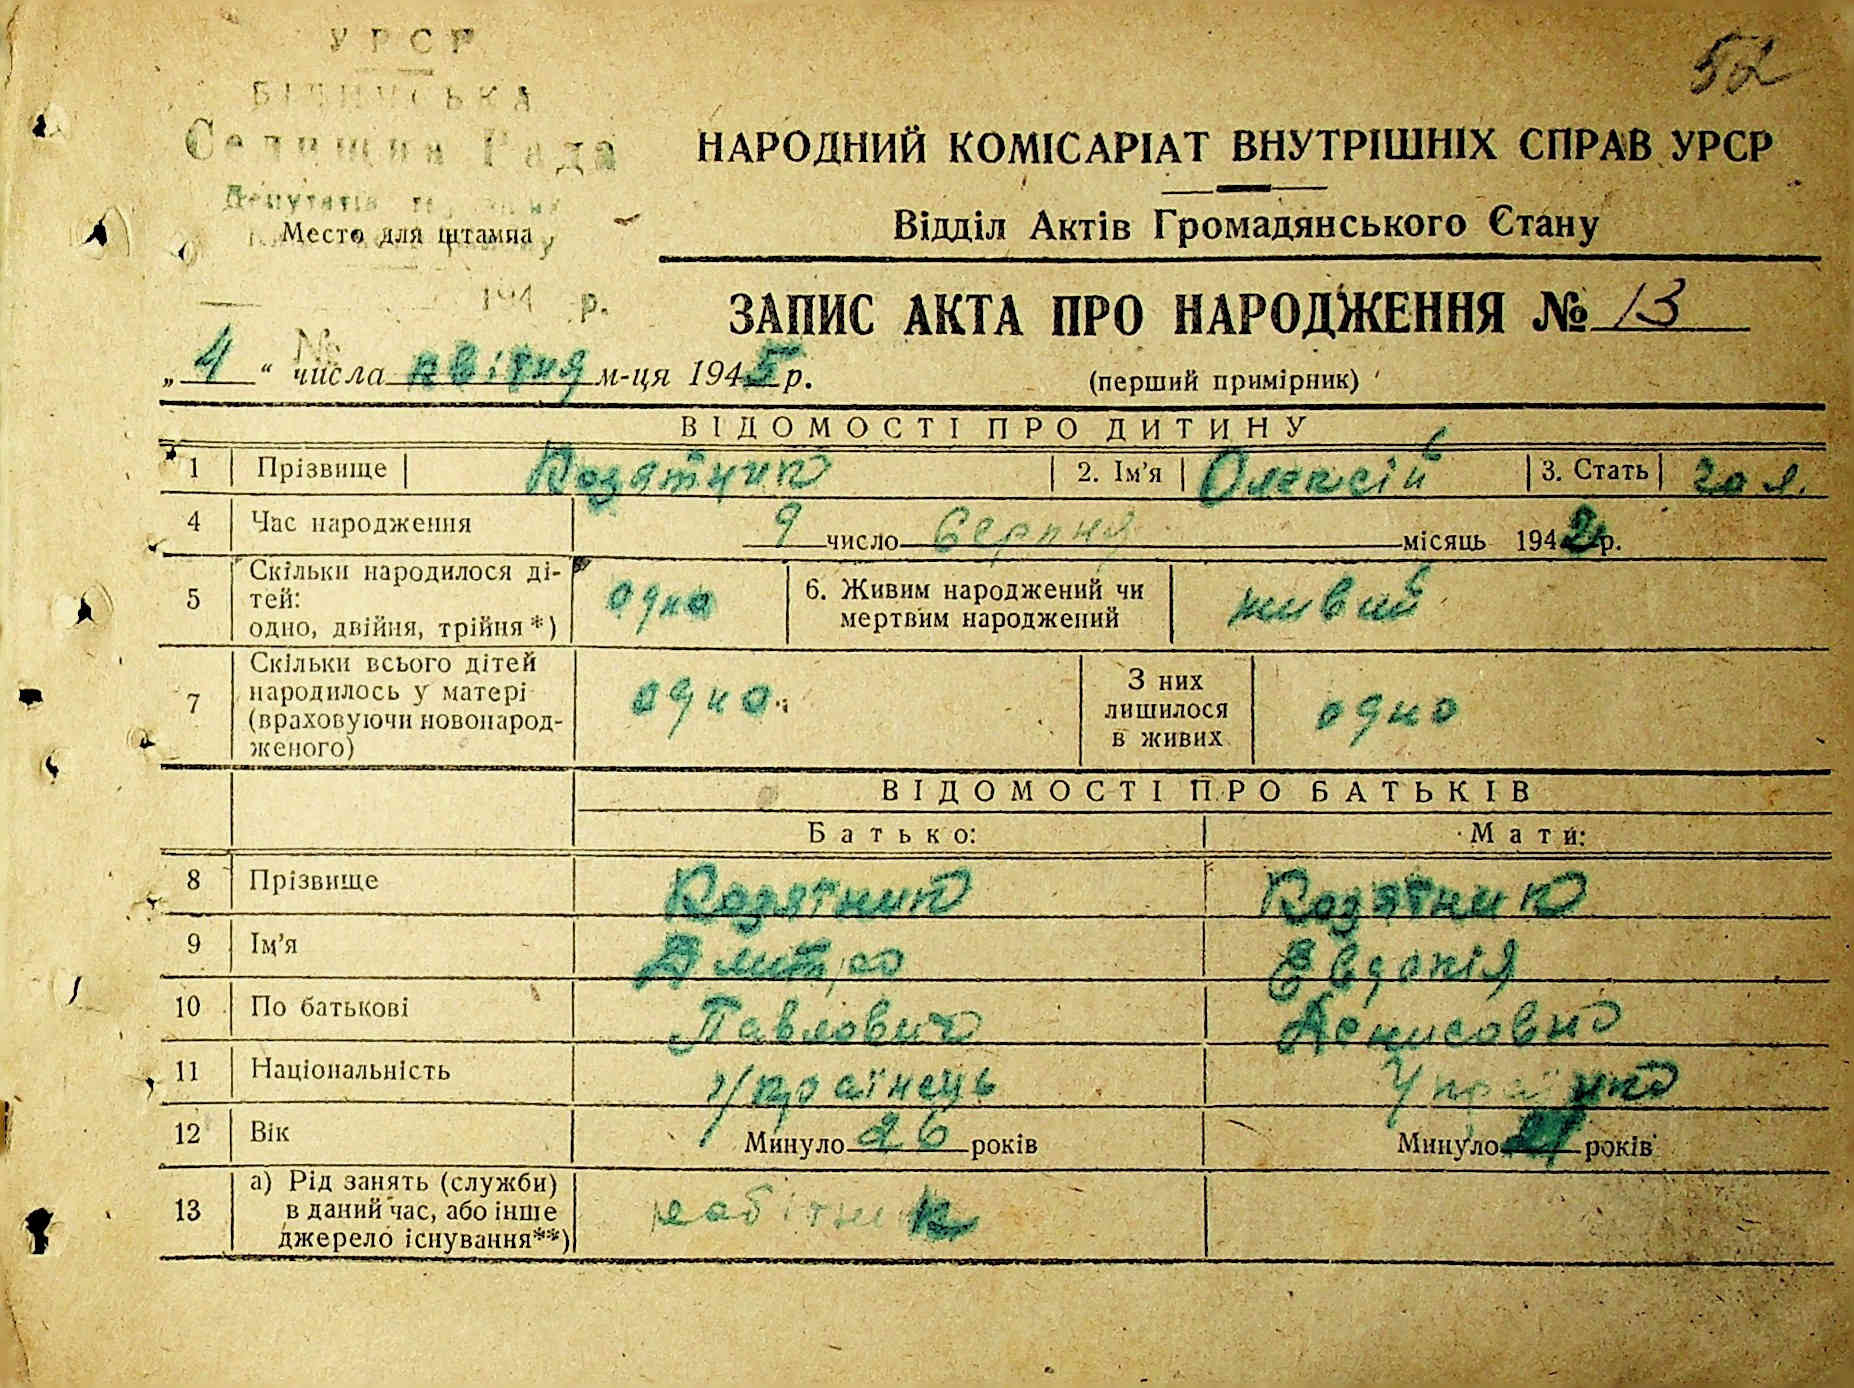 УРСР
52
Селищна Рада
Депутатів
НАРОДНИЙ КОМІСАРІАТ ВНУТРІШНІХ СПРАВ УРСР
Место для штампа
Відділ Актів Громадянського Стану
194 р.
ЗАПИС АКТА ПРО НАРОДЖЕННЯ № 13
№
„ 4 “ числа квітня м-ця 1945 р.
(перший примірник)
ВІДОМОСТІ ПРО ДИТИНУ
1 Прізвище Козятник 2. Ім’я Олексій 3. Стать
4 Час народження 9 число Серпня місяць 1942 р.
5 Скільки народилося ді-
тей:
одно, двійня, трійня *) одно 6. Живим народжений чи
мертвим народжений живий
7 Скільки всього дітей
народилось у матері
(враховуючи новонарод-
женого) одно. З них
лишилося
в живих одно
ВІДОМОСТІ ПРО БАТЬКІВ
Батько: Мати:
8 Прізвище Козятник Козятник
9 Ім’я Дмитро Евдокія
10 По батькові Павлович Денисовна
11 Національність Українець Українка
12 Вік Минуло 26 років Минуло років
13 а) Рід занять (служби)
в даний час, або інше
джерело існування**) робітник